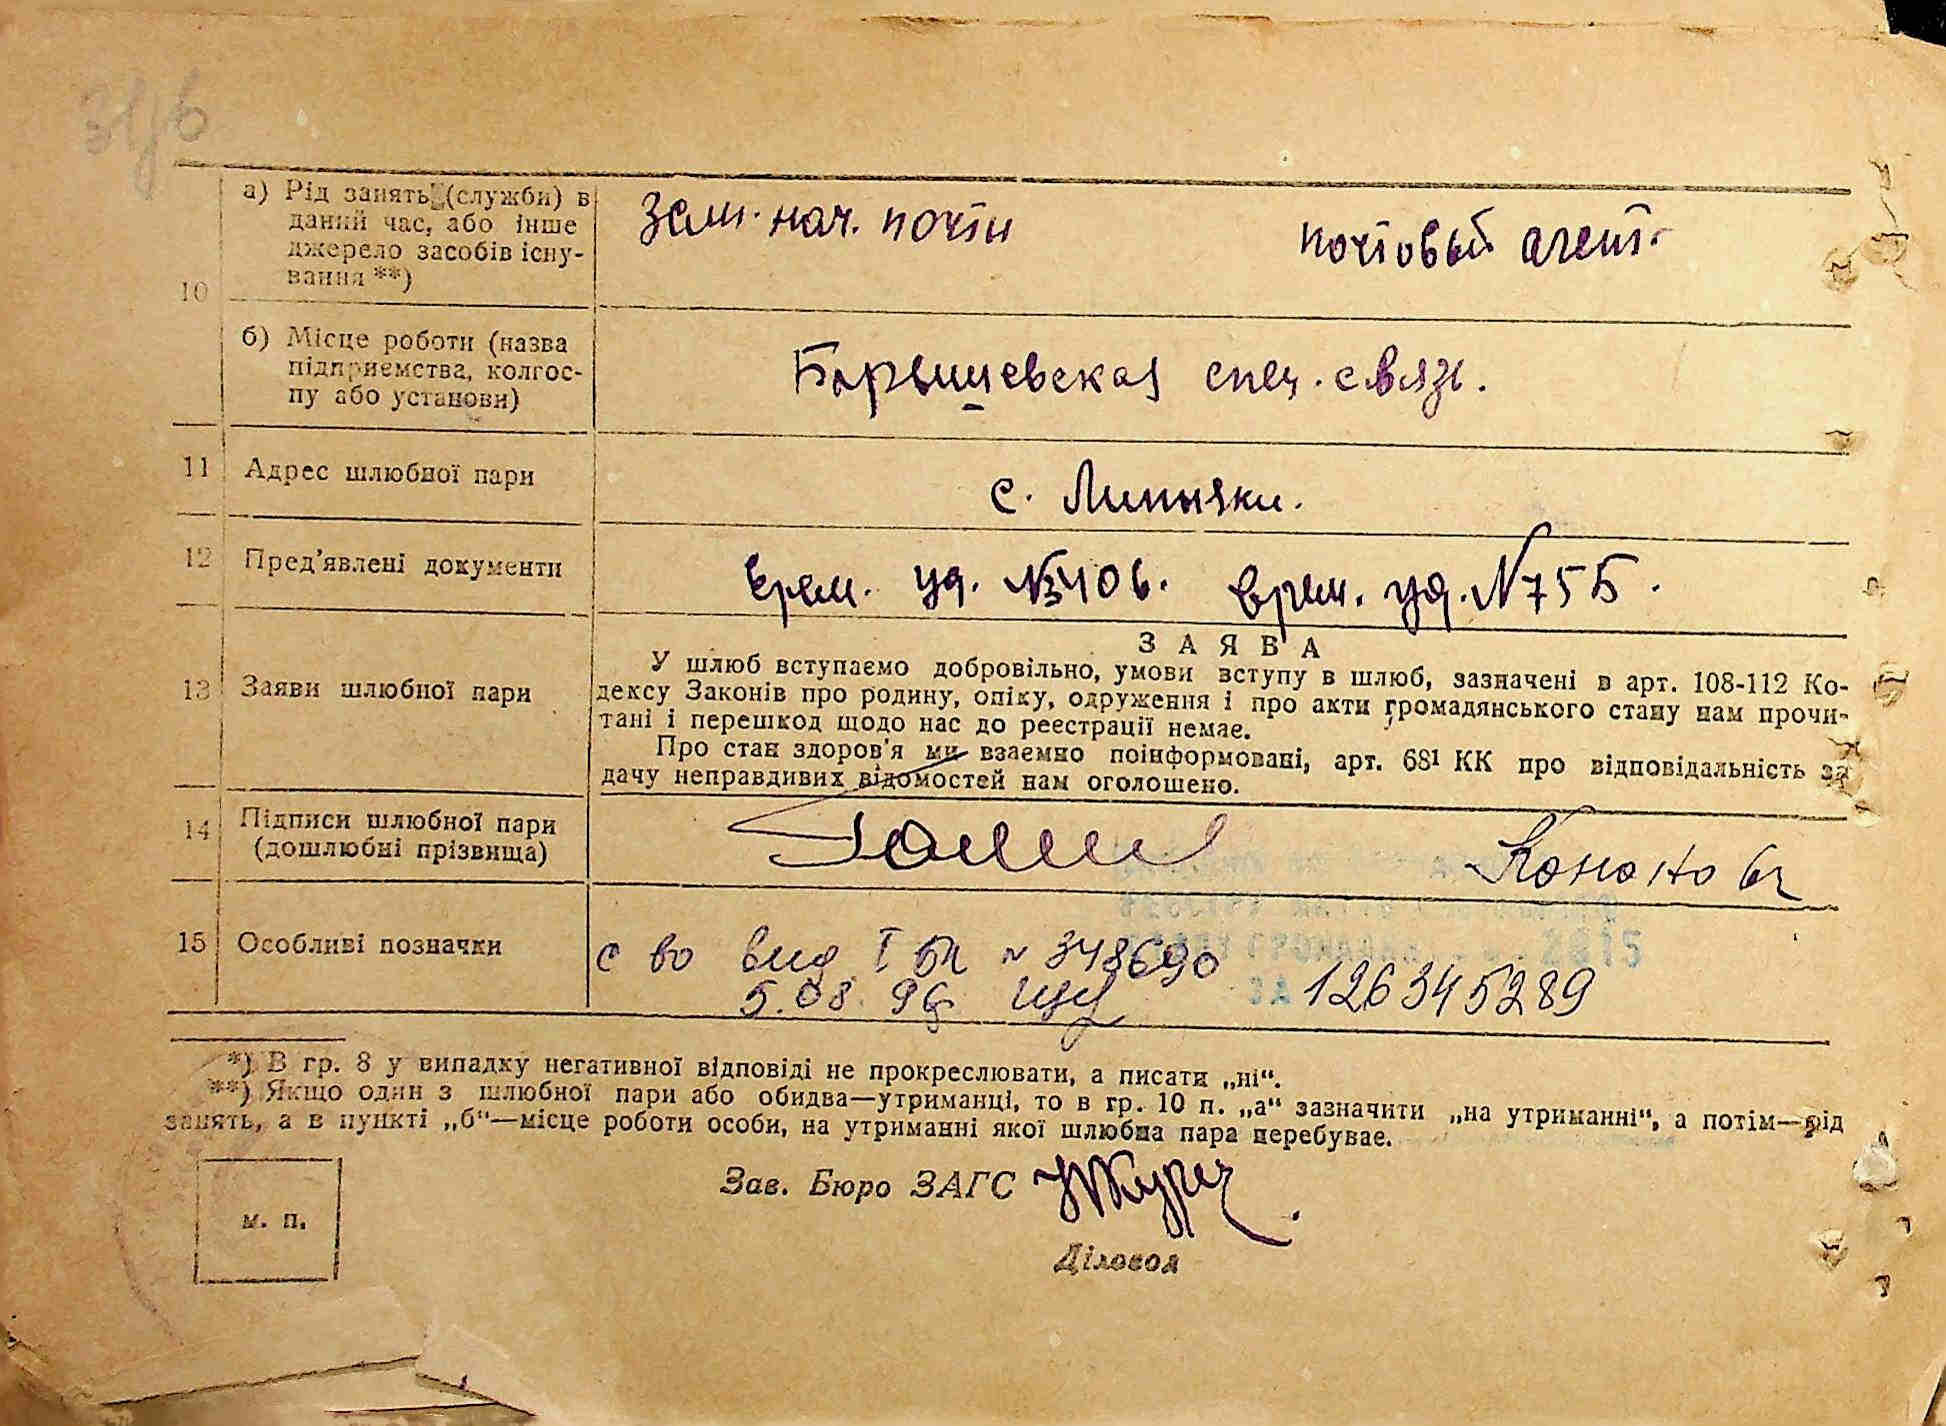 10
а) Рід занять (служби) в
даний час, або інше
джерело засобів існу-
вання **)
Зам. нач. почти
почтовый агент.
б) Місце роботи (назва
підприємства, колгос-
пу або установи)
Барышевская спец. связь.
11 Адрес шлюбної пари
с. Липняки.
12 Пред'явлені документи
врем. уд. №406. врем. уд. N75Б.
13 Заяви шлюбної пари
ЗАЯВА
У шлюб вступаємо добровільно, умови вступу в шлюб, зазначені в арт. 108-112 Ко-
дексу Законів про родину, опіку, одруження і про акти громадянського стану нам прочи-
тані і перешкод щодо нас до реестрації немає.
Про стан здоров'я ми взаємно поінформовані, арт. 68¹ КК про відповідальність за
дачу неправдивих відомостей нам оголошено.
14 Підписи шлюбної пари
(дошлюбні прізвища)
15 Особливі позначки
с во вид I БК N 348690
5.08.96
2015
ЗА 126345289
*) В гр. 8 у випадку негативної відповіді не прокреслювати, а писати „ні“.
**) Якщо один з шлюбної пари або обидва—утриманці, то в гр. 10 п. „а“ зазначити „на утриманні“, а потім—рід
занять, а в пункті „б“—місце роботи особи, на утриманні якої шлюбна пара перебуває.
Зав. Бюро ЗАГС
м. п.
Діловод